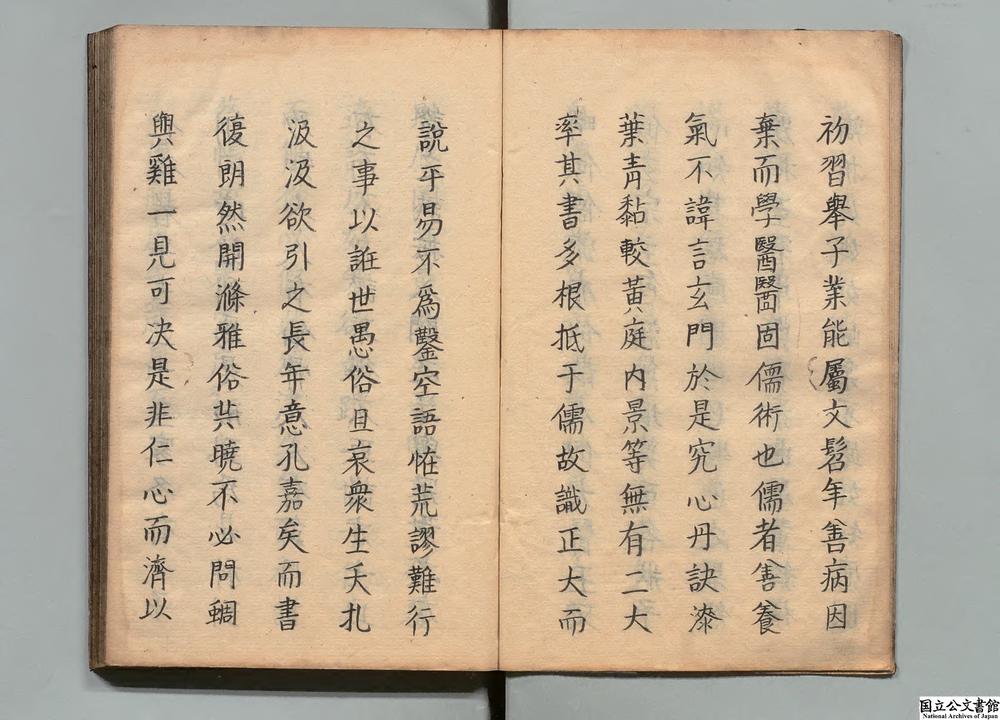 初習舉子業能屬文髫年善病因
棄而學醫醫固儒術也儒者善養
氣不諱言玄門於是究心丹訣漆
葉青黏較黃庭內景等無有二大
率其書多根抵于儒故識正大而
說平易不為鑿空語恠荒謬難行
之事以誑世愚俗且哀衆生夭扎
汲汲欲引之長年意孔嘉矣而書
復朗然開滌雅俗共曉不必問蜩
與雞一見可决是非仁心而濟以
国立公文書館
National Archives of Japan